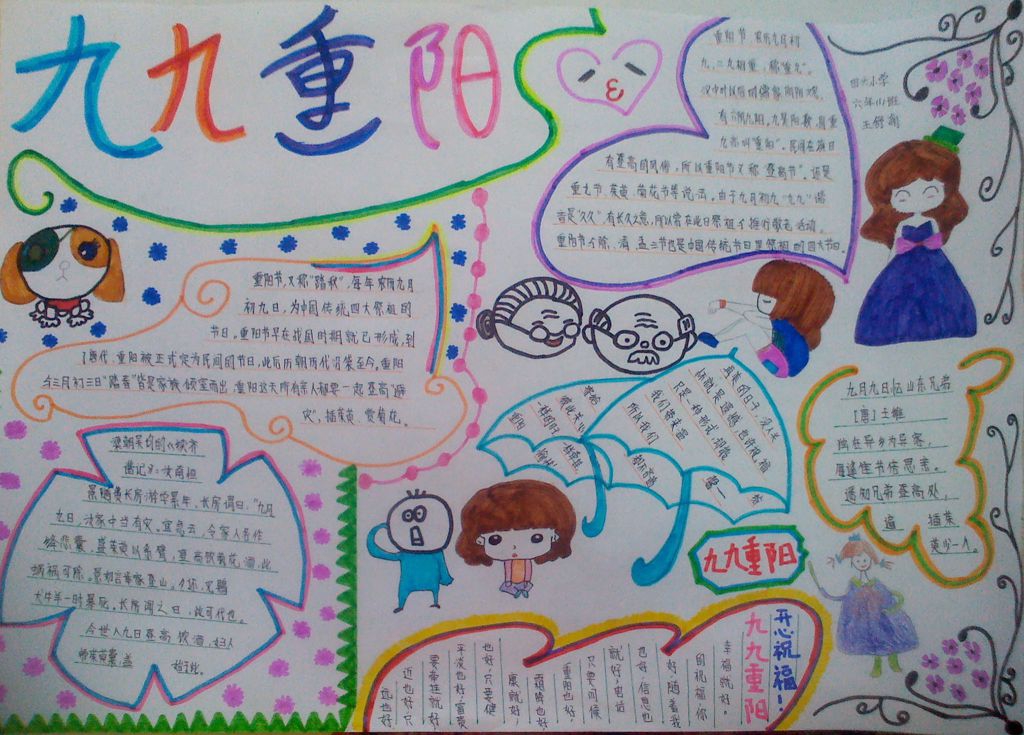 九九重阳
重阳节,农历九月初
九,二九相重,称"重九"。
汉中叶以后的儒家阴阳观,
有六阴九阳。九是阳数,固重
九亦叫"重阳"。民间在该日
有登高的风俗,所以重阳节又称"登高节"。还是
重九节、茱萸、菊花节等说法。由于九月初九"九九"谐
音是"久久",有长久之意,所以常在此日祭祖与推行敬老活动。
重阳节与除、清、盂三节也是中国传统节日里祭祖的四大节日。
六年(1)班
重阳节,又称"踏秋",每年农历九月
初九日,为中国传统四大祭祖的
节日。重阳节早在战国时期就已形成,到
了唐代,重阳被正式定为民间的节日,此后历朝历代沿袭至今。重阳
今三月初三日"踏春"皆是家族倾室而出,重阳这天所有亲人都要一起登高"避
灾",插茱萸、赏菊花。
九月九日忆山东兄弟
[唐]王维
独在异乡为异客,
每逢佳节倍思亲。
遥知兄弟登高处,
遍 插茱
萸少一人。
梁朝吴均的《续齐
谐记》:汝南桓
景随费长房游学累年,长房谓曰,"九月
九日,汝家中当有灾,宜急去,令家人各作
绛囊,盛茱萸以系臂,登高饮菊花酒,此
祸可除。景如言举家登山。夕还,见鸡
犬牛羊一时暴死。长房闻之曰,此可代也。
今世人九日登高饮酒,妇人
带茱萸囊,盖
始于此。
九九重阳
开心祝福!
九九重阳
幸福就好。
的祝福你
好,随着我
也好,信息也
就好;电话
只要问候
重阳也好,
霜降也好
康就好;
也好,只要健
平淡也好,富贵
要牵挂就好;
近也好,只
远也好